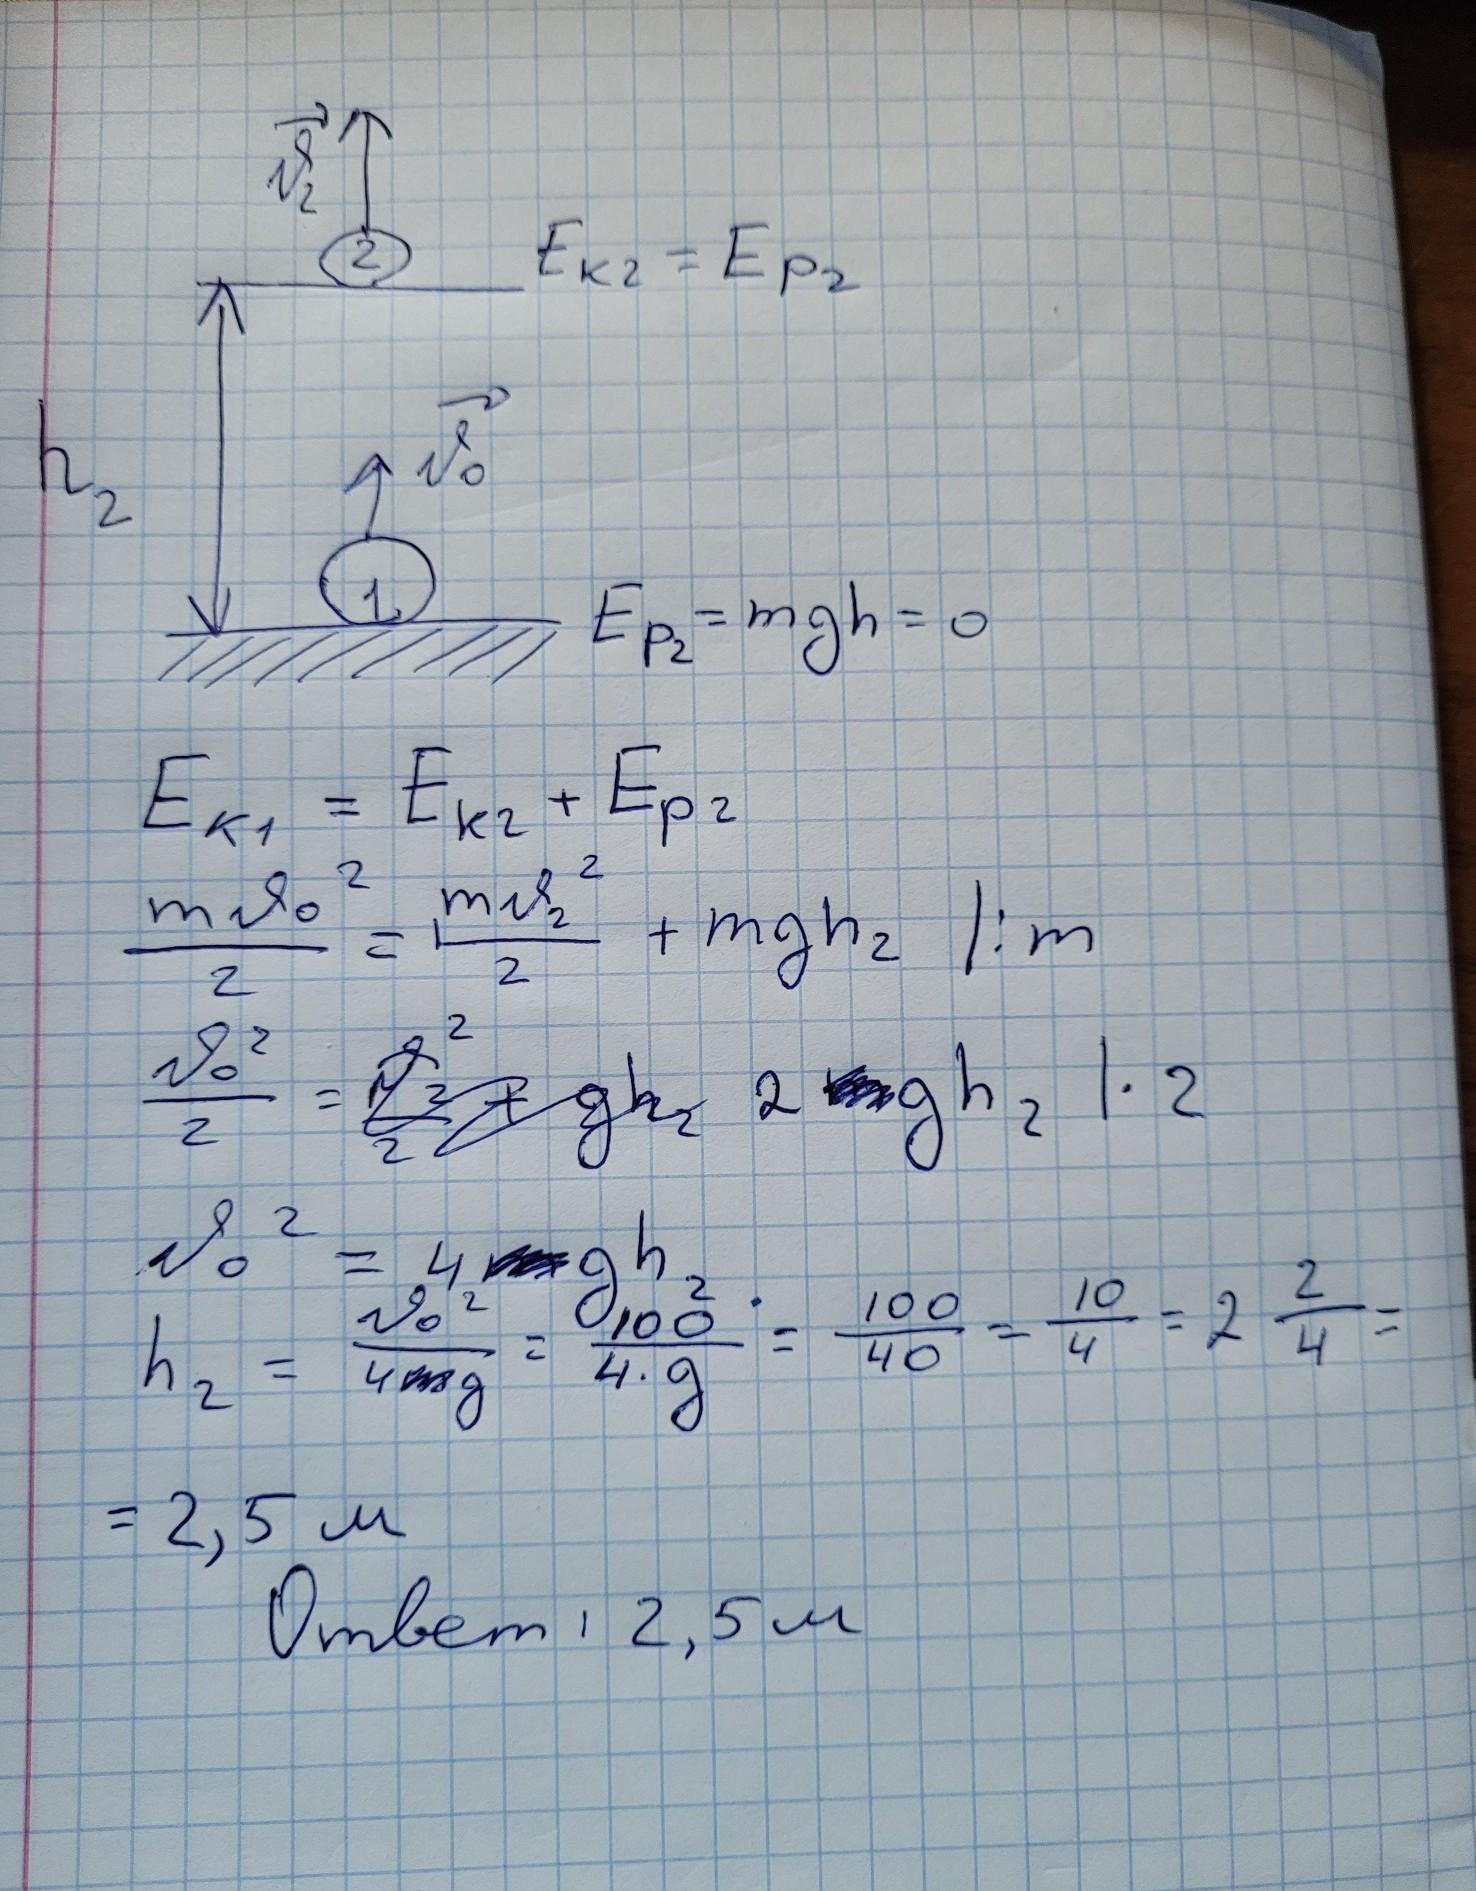 v₂
2
Eк2 = Ep2
h₂
v₀
1
Ep₂ = mgh = 0
Eк1 = Eк2 + Ep2
mv₀²/2 = mv₂²/2 + mgh₂ |:m
v₀²/2 = v₂²/2 + gh₂ 2gh₂ |·2
v₀² = 4gh₂
h₂ = v₀²/4g = 100/4·g = 100/40 = 10/4 = 2 2/4 =
= 2,5 м
Ответ: 2,5 м